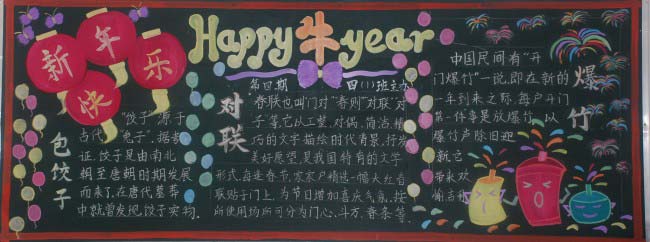 新年快乐
Happy 牛 year
第四期 四(1)班主办
包饺子
"饺子"源于
古代"
证,饺子是由南北
朝至唐朝时期发展
而来了,在唐代墓葬
中就曾发现饺子实物.
对联
春联也叫门对"春贴"对联"对
子"等,它以工整、对偶,简洁,精
巧的文字描绘时代背景,抒发
美好愿望,是我国特有的文字
形式,每逢春节,家家户户精选一幅大红春
联贴于门上,为节日增加喜庆气氛,按
所使用场所可分为门心、斗方、春条等.
爆竹
中国民间有"开
门爆竹"一说,即在新的
一年到来之际,每户开门
第一件事是放爆竹,以
爆竹声除旧迎
新,它
带来欢
愉吉利